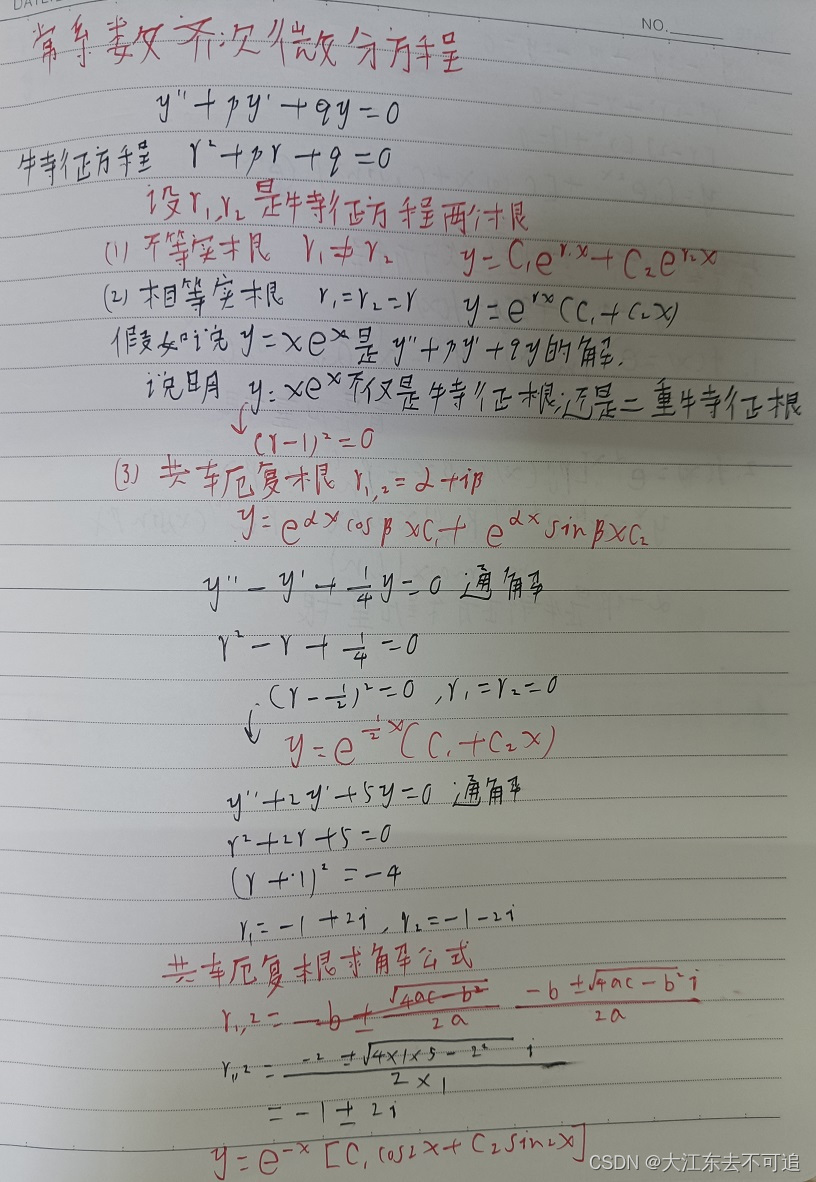 DATE:
NO.
常系数齐次微分方程
y''+py'+qy=0
特征方程 r²+pr+q=0
设r₁,r₂是特征方程两个根
(1) 不等实根 r₁≠r₂ y=C₁e^{r₁x}+C₂e^{r₂x}
(2) 相等实根 r₁=r₂=r y=e^{rx}(C₁+C₂x)
假如说 y=xe^x是y''+py'+qy的解.
说明 y=xe^x不仅是特征根,还是二重特征根
↓ (r-1)²=0
(3) 共轭复根 r₁,₂=α+iβ
y=e^{αx}cosβxC₁+e^{αx}sinβxC₂
y''-y'+1/4y=0 通解
r²-r+1/4=0
(r-1/2)²=0 ,r₁=r₂=0
↓ y=e^{1/2x}(C₁+C₂x)
y''+2y'+5y=0 通解
r²+2r+5=0
(r+1)²=-4
r₁=-1+2i, r₂=-1-2i
共轭复根求解公式
r₁,₂=-b±√(4ac-b²)/2a (-b±√(4ac-b²)i)/2a
r₁,₂=(-2±√(4×1×5-2²)i)/(2×1)
=-1±2i
y=e^{-x}[C₁cos2x+C₂sin2x]
CSDN @大江东去不可追